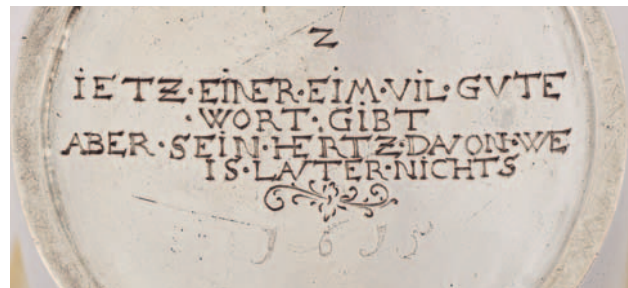 Z
IETZ·EINER·EIM·VIL·GVTE
·WORT·GIBT
ABER·SEIN·HERTZ·DAVON·WE
IS·LAVTER·NICHTS